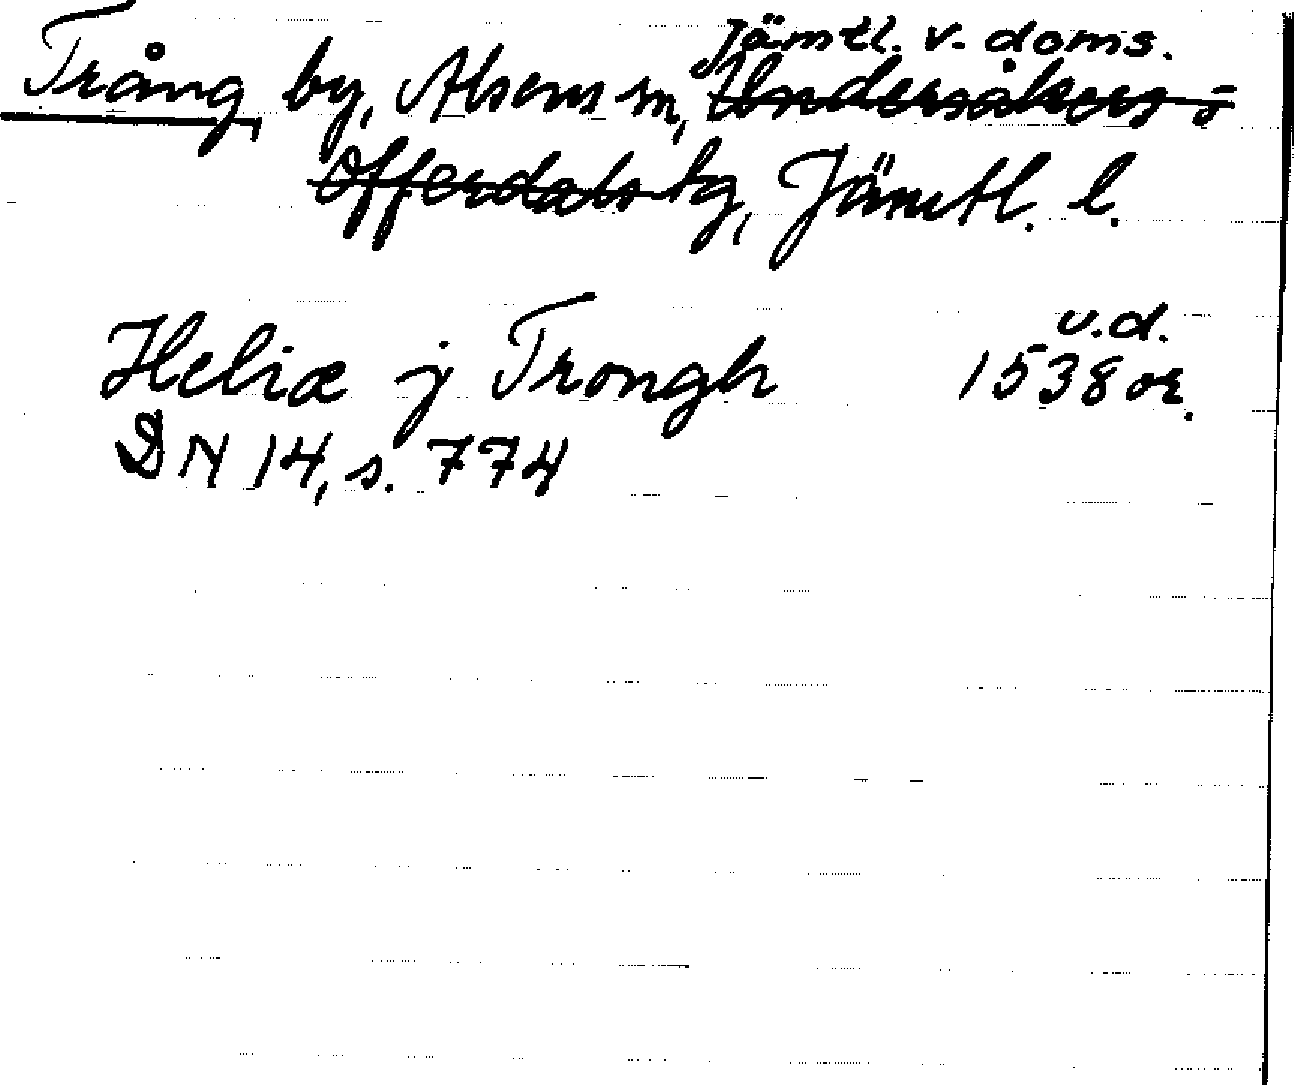 Jämtl. v. doms.
Trång, by, Alsens sn, Undersåkers-
Offerdals tg, Jämtl. l.
v.d.
Heliæ j Trongh 1538 or.
DN 14, s. 774